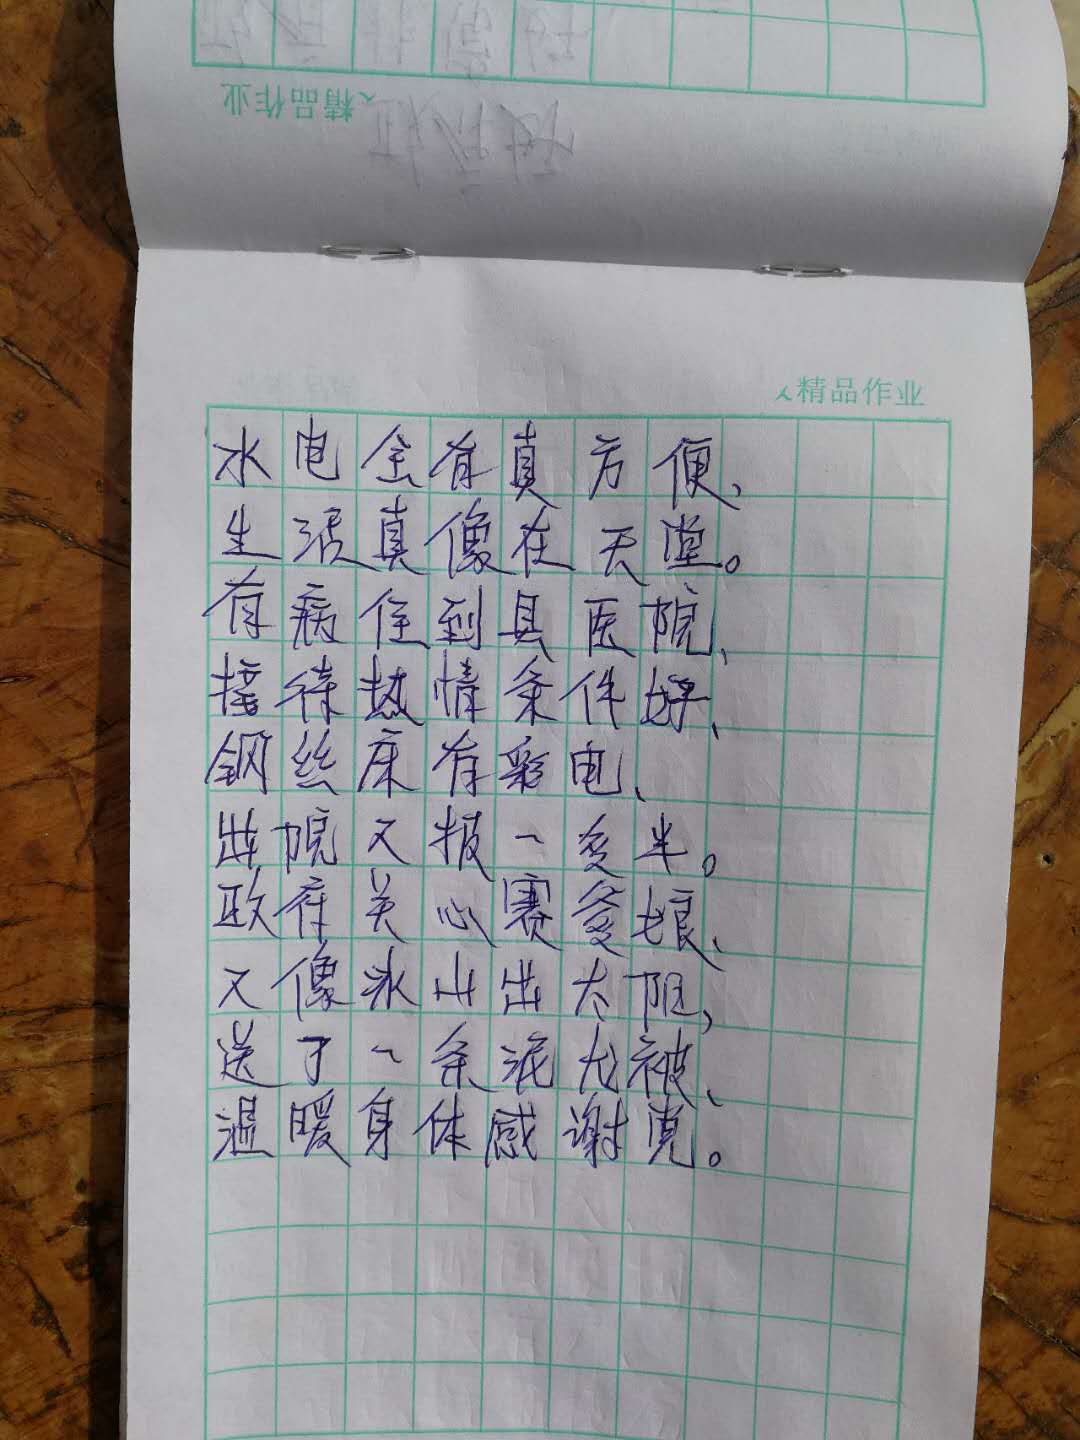 精品作业
精品作业
水电全有真方便、
生活真像在天堂。
有病住到县医院、
接待热情条件好、
钢丝床有彩电、
出院又报一多半。
政府关心赛爹娘、
又像冰山出太阳，
送了一条泥大被、
温暖身体感谢党。